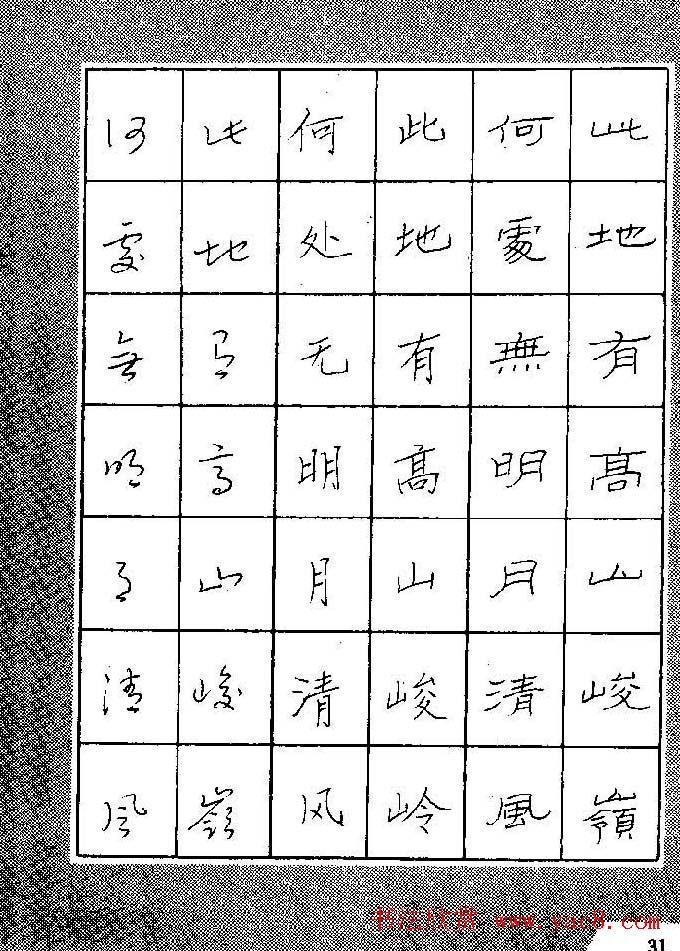 此地有髙山峻嶺
何處無明月清風
此地有髙山峻岭
何处无明月清风
此地有高山峻嶺
何處無明月清風
书法欣赏 www.yac8.com
31